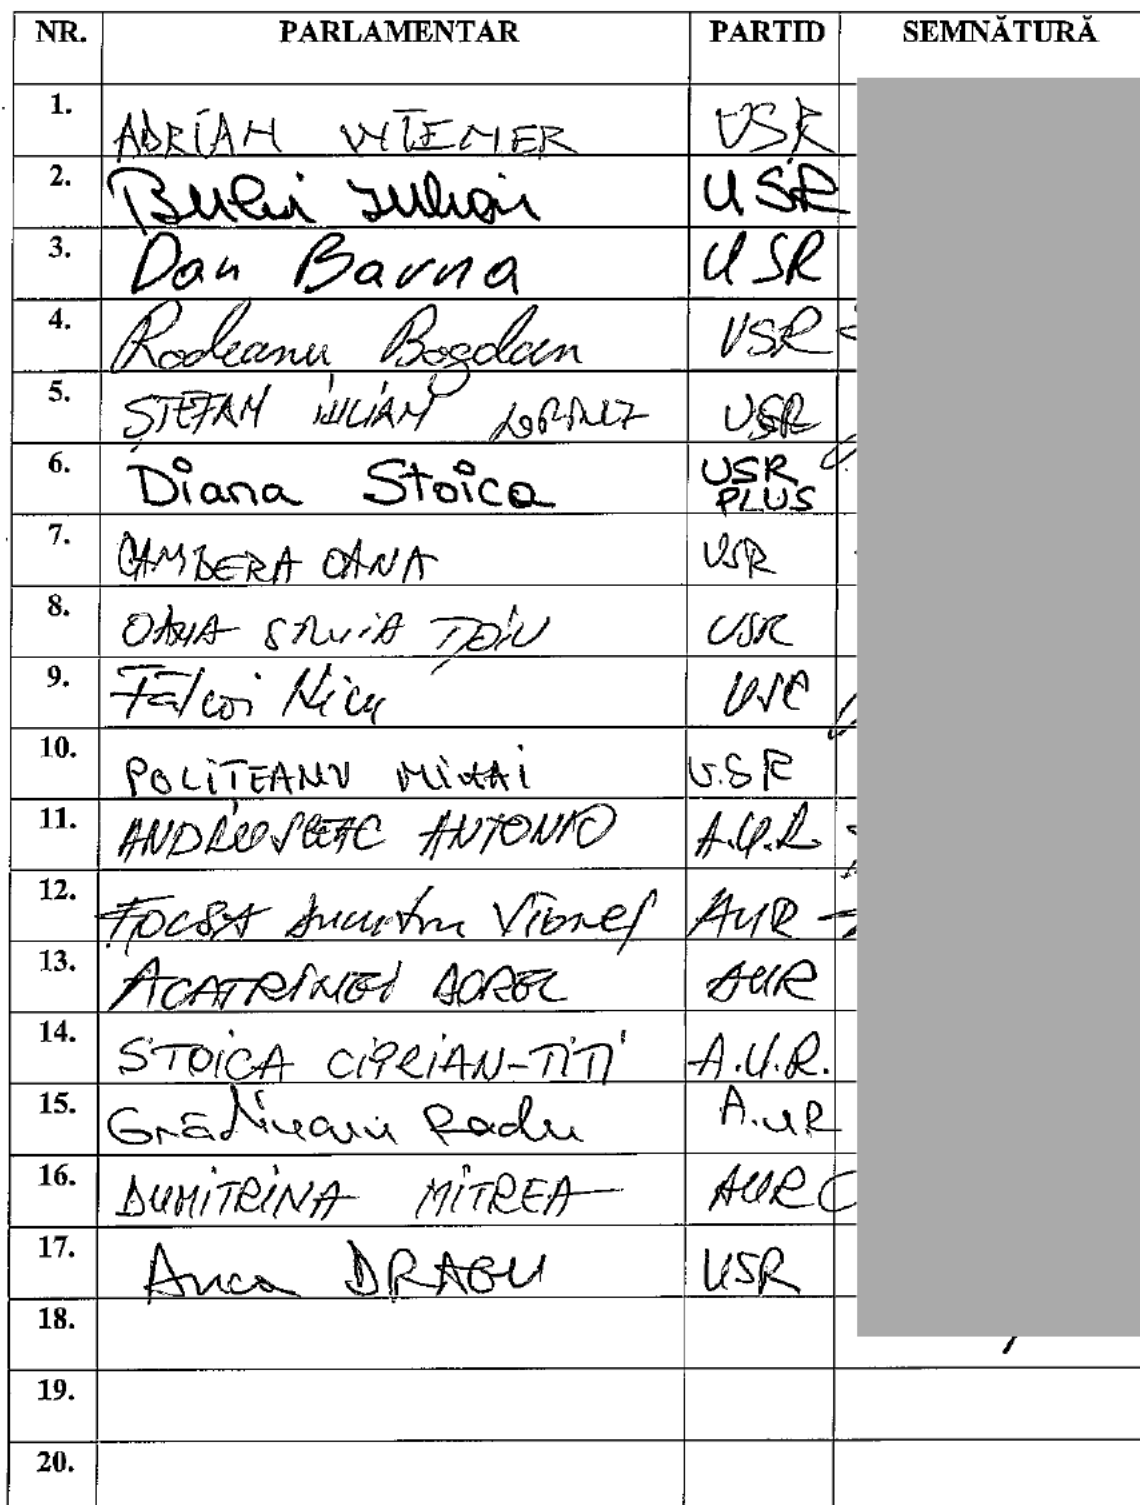 NR. PARLAMENTAR PARTID SEMNĂTURĂ
1. ADRIAN WIENER USR
2. Bulai Iulian USR
3. Dan Barna USR
4. Rodeanu Bogdan USR
5. ȘTEFAN IULIAN LORINCZ USR
6. Diana Stoica USR
PLUS
7. CAMBERA OANA USR
8. OANA SILVIA ȚOIU USR
9. Fălcoi Nicu USR
10. POLITEANU MIHAI U.S.R
11. ANDRUSCEAC ANTONIO A.U.R.
12. FOCȘA Dumitru Viorel AUR
13. ACATRINEI DOREL AUR
14. STOICA CIPRIAN-TITI A.U.R.
15. Grădinaru Radu A.UR
16. DUMITRINA MITREA AUR
17. Anca DRAGU USR
18.
19.
20.